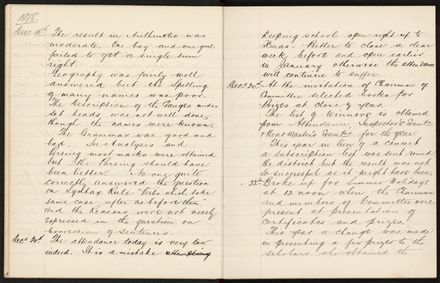 1898.
Dec. 19th. The result in Arithmetic was
moderate. One boy and one girl
failed to get a single sum
right.
Geography was fairly well
answered but the spelling
of many names was poor.
The description of the Ranges under
set heads was not well done,
though the names were known.
The Grammar was good and
bad. In analysis and
Parsing most marks were obtained
but the Parsing should have
been better. No one quite
correctly answered the question
on Syntax Rule "Verbs that take
same case after as before them"
and the reasons were not nicely
expressed in the question on
Correction of Sentences.
Dec. 20th. The attendance today is very low
indeed. It is a mistake
keeping school open right up to
Xmas. Better to close a clear
week before and open earlier
in January otherwise the attendance
will continue to suffer.
Dec. 20th At the invitation of Chairman of
Committee selected books for
Prizes at close of year.
The list of winners is obtained
from Attendance, Inspector's Exmtn
& Head Master's Exmtn for the year.
This year in lieu of a concert
a subscription list was sent round
the district but the result was not
so successful as it might have been.
22nd Broke up for Summer Holidays
at 12 noon when the Chairman
and members of Committee were
present at presentation of
certificates and prizes.
This year a change was made
in presenting a few prizes to the
scholars who obtained the